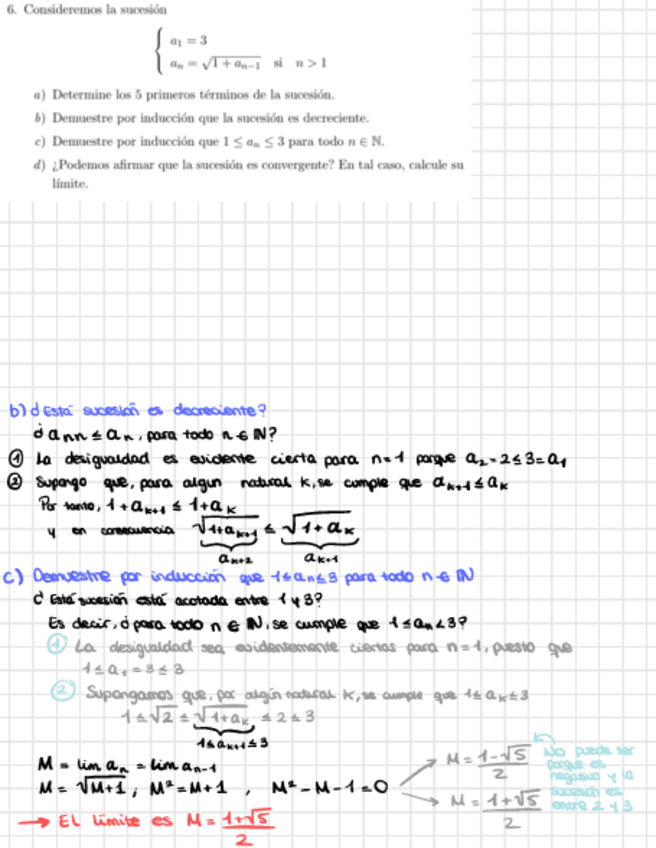 6. Consideremos la sucesión
a₁ = 3
aₙ = √(1 + aₙ₋₁) si n > 1
a) Determine los 5 primeros términos de la sucesión.
b) Demuestre por inducción que la sucesión es decreciente.
c) Demuestre por inducción que 1 ≤ aₙ ≤ 3 para todo n ∈ ℕ.
d) ¿Podemos afirmar que la sucesión es convergente? En tal caso, calcule su
límite.
b) ¿Está sucesión es decreciente?
¿ aₙ₊₁ ≤ aₙ, para todo n ∈ ℕ?
① La desigualdad es evidente cierta para n=1 porque a₂=2≤3=a₁
② Supongo que, para algun natural k, se cumple que aₖ₊₁≤aₖ
Por tanto, 1+aₖ₊₁ ≤ 1+aₖ
y en consecuencia √(1+aₖ₊₁) ≤ √(1+aₖ)
aₖ₊₂ aₖ₊₁
c) Demuestre por inducción que 1≤aₙ≤3 para todo n∈ℕ
¿ Está sucesión está acotada entre 1 y 3?
Es decir, ¿ para todo n ∈ ℕ, se cumple que 1≤aₙ≤3?
① La desigualdad sea evidentemente ciertas para n=1, puesto que
1≤a₁=3≤3
② Supongamos que, por algún natural k, se cumple que 1≤aₖ≤3
1≤√2≤√(1+aₖ)≤2≤3
1≤aₖ₊₁≤3
M = lim aₙ = lim aₙ₋₁
M = √(M+1) ; M² = M+1 , M² - M - 1 = 0
M = (1-√5)/2 No puede ser
porque es
negativo y la
sucesión es
entre 2 y 3
M = (1+√5)/2
→ El límite es M = (1+√5)/2